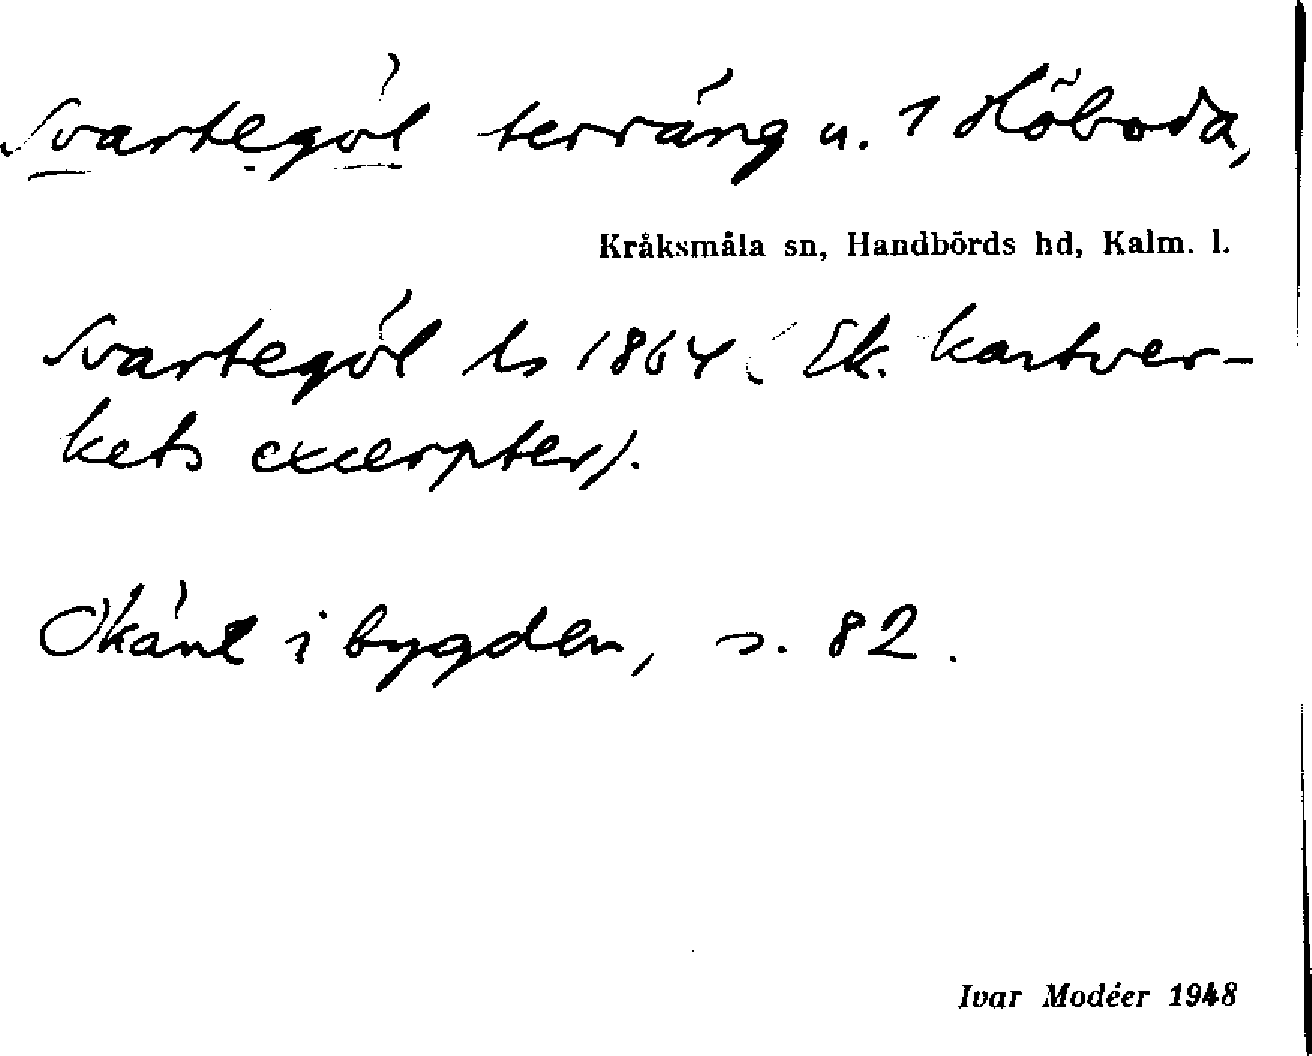 Svartegöl terräng u. 1 Höboda,
Kråksmåla sn, Handbörds hd, Kalm. l.
Svartegöl ls 1864 (Ek. kartver-
kets excerpter).
Okänt i bygden, s. 82.
Ivar Modéer 1948